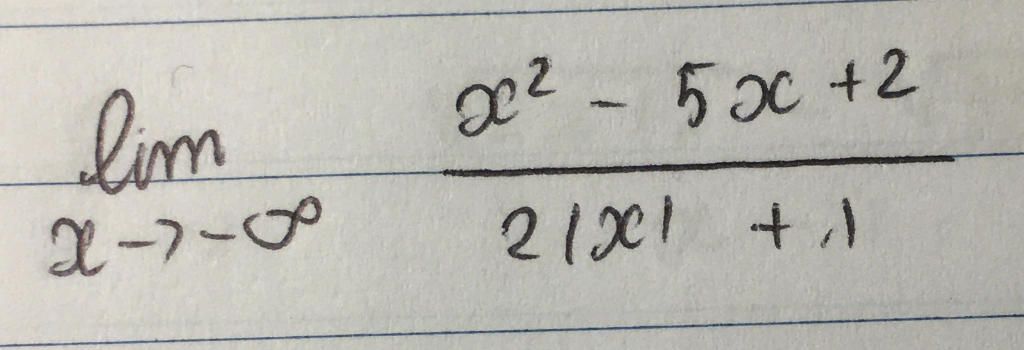 lim x→-∞ (x² - 5x + 2) / (2|x| + 1)